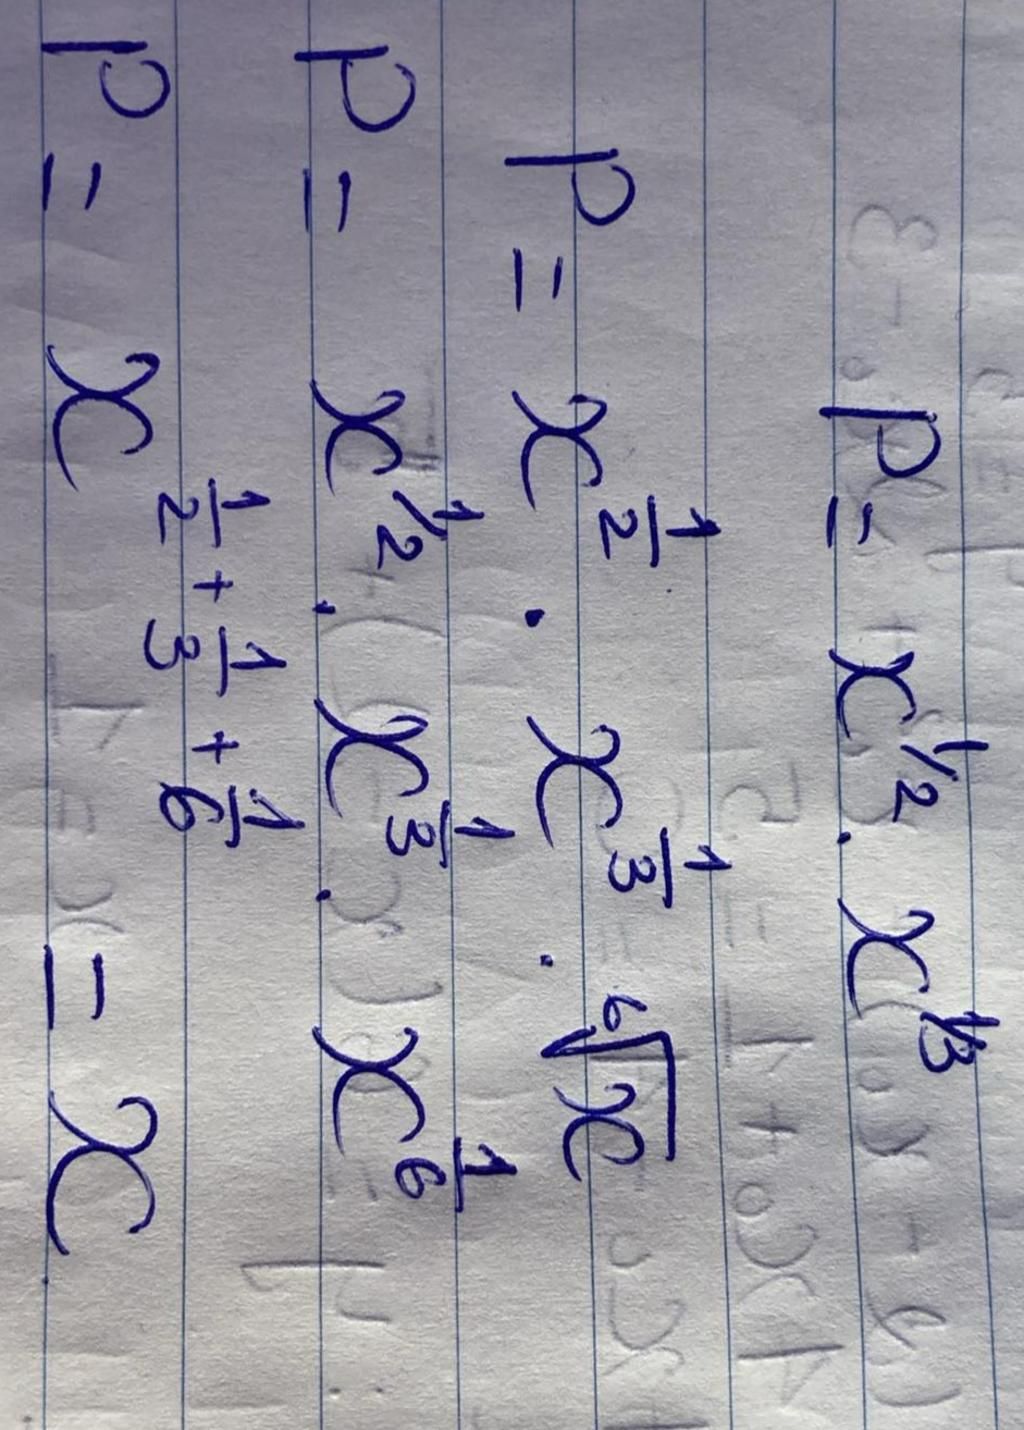 P = x^{1/2} . x^{1/3}
P = x^{\frac{1}{2}} . x^{\frac{1}{3}} . \sqrt[6]{x}
P = x^{1/2} . x^{\frac{1}{3}} . x^{\frac{1}{6}}
P = x^{\frac{1}{2} + \frac{1}{3} + \frac{1}{6}} = x .